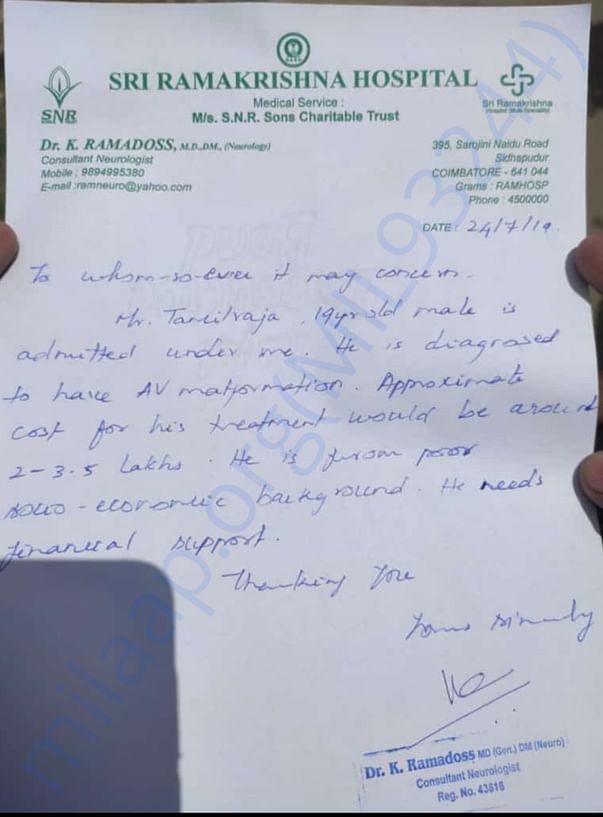 SRI RAMAKRISHNA HOSPITAL
Medical Service :
M/s. S.N.R. Sons Charitable Trust
SNR
Sri Ramakrishna
Hospital (Multi-Speciality)
Dr. K. RAMADOSS, M.D.,DM., (Neurology)
Consultant Neurologist
Mobile : 9894995380
E-mail :ramneuro@yahoo.com
395, Sarojini Naidu Road
Sidhapudur
COIMBATORE - 641 044
Grams : RAMHOSP
Phone : 4500000
DATE : 24/7/19.
To whom-so-ever it may concern.
Mr. Tamilraja, 19yr old male is
admitted under me. He is diagnosed
to have AV malformation. Approximate
cost for his treatment would be around
2-3.5 Lakhs. He is from poor
socio-economic background. He needs
financial support.
Thanking You
Yours sincerely
Dr. K. Ramadoss MD (Gen.) DM (Neuro)
Consultant Neurologist
Reg. No. 43816
milaap.org(MIL_93244)